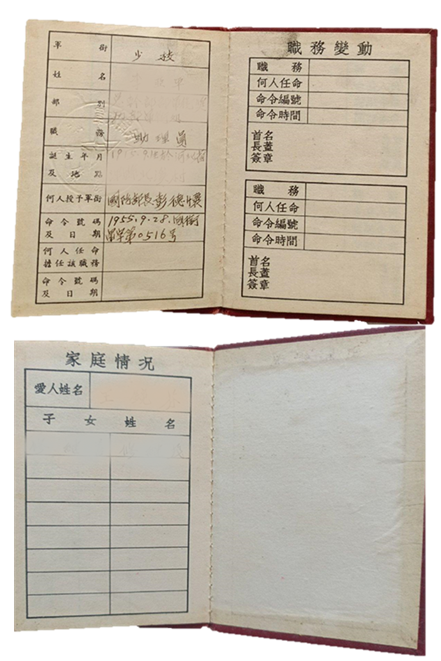 軍銜 少校
姓名
部別
職務 助理員
誕生年月
及地點
何人授予軍銜 國防部長彭德懷
命令號碼 1955.9.28.
及日期 第0516号
何人任命
擔任該職務
命令號碼
及日期
職務變動
職務
何人任命
命令編號
命令時間
首名
長蓋
簽章
職務
何人任命
命令編號
命令時間
首名
長蓋
簽章
家庭情况
愛人姓名
子女姓名